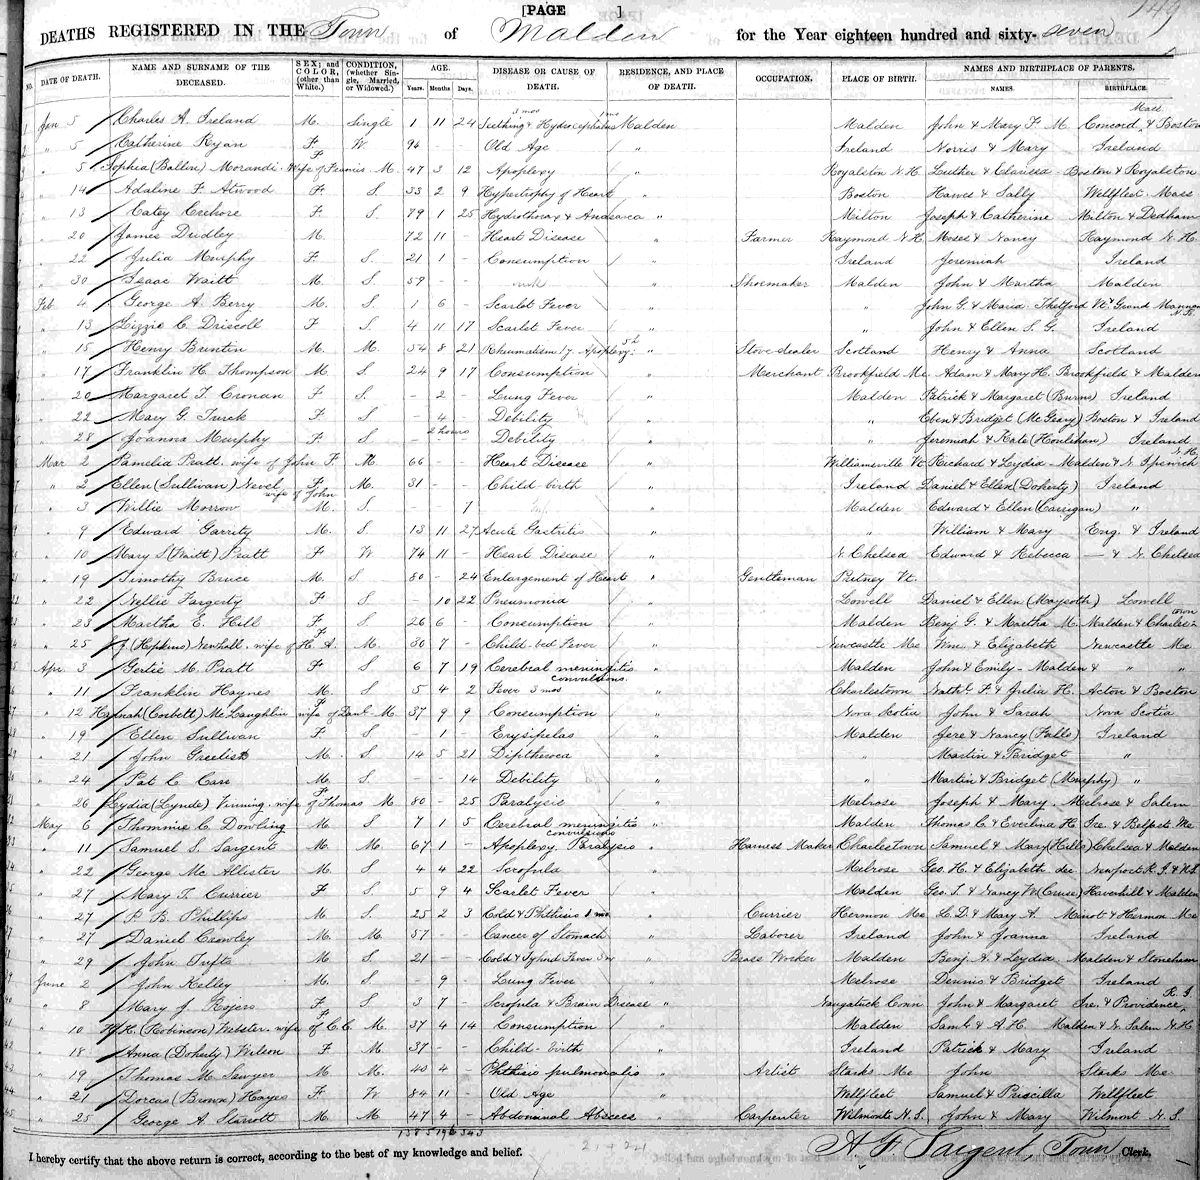 [PAGE ]
149
DEATHS REGISTERED IN THE Town of Malden for the Year eighteen hundred and sixty-seven
NO. DATE OF DEATH. NAME AND SURNAME OF THE DECEASED. SEX; and COLOR, (other than White.) CONDITION, (whether Single, Married, or Widowed.) AGE. Years. Months Days. DISEASE OR CAUSE OF DEATH. RESIDENCE, AND PLACE OF DEATH. OCCUPATION. PLACE OF BIRTH. NAMES AND BIRTHPLACE OF PARENTS. NAMES. BIRTHPLACE.
1 Jan 5 Charles A. Ireland M. Single 1 11 24 Teething & Hydrocephalus 3 mos Malden Malden John & Mary F. M. Concord, & Boston Mass
2 " 5 Catherine Ryan F W. 94 - - Old Age " Ireland Norris & Mary Ireland
" 5 Sophia (Ballin) Morandi - Wife of Francis F M. 47 3 12 Apoplexy " Royalston N.H. Luther & Clarissa Boston & Royalston
" 14 Adaline F. Atwood F. S. 33 2 9 Hypertrophy of Heart " Boston Hawes & Sally Wellfleet Mass
" 13 Catey Crehore F. S. 79 1 25 Hydrothorax & Anasarca " Milton Joseph & Catherine Milton & Dedham
" 20 James Dudley M. 72 11 - Heart Disease " Farmer Raymond N.H. Moses & Nancy Raymond N.H.
" 22 Julia Murphy F. S. 21 1 - Consumption " Ireland Jeremiah Ireland
" 30 Isaac Waitt M. S. 59 - - unk " Shoemaker Malden John & Martha Malden
Feb 4 George A. Berry M. S. 1 6 - Scarlet Fever " " John G. & Maria Thetford Vt & Grand Mannan N.B.
" 13 Lizzie C. Driscoll F S. 4 11 17 Scarlet Fever " " John & Ellen S. G. Ireland
" 15 Henry Bruntin M. M. 54 8 21 Rheumatism 17. Apoplexy 5 d " Stove dealer Scotland Henry & Anna Scotland
" 17 Franklin H. Thompson M S 24 9 17 Consumption " Merchant Brookfield Me Adam & Mary H. Brookfield & Malden
" 20 Margaret F. Cronan F S. - 2 - Lung Fever " Malden Patrick & Margaret (Burns) Ireland
" 22 Mary G. Turck F S. - 4 - Debility " " Eben & Bridget (McGeary) Boston & Ireland
" 28 Joanna Murphy F S. - - 2 hours Debility " " Jeremiah & Kate (Houlihan) Ireland
Mar 2 Pamelia Pratt. wife of John F. M. 66 - - Heart Disease " Williamsville Vt Richard & Lydia Malden & N. Ipswich N.H.
" 2 Ellen (Sullivan) Nevel wife of John F M. 31 - - Child birth " Ireland Daniel & Ellen (Doherty) Ireland
" 3 Willie Morrow M. S. - - 7 " Malden Edward & Ellen (Carrigan) "
" 9 Edward Garrity M. S. 13 11 27 Acute Gastritis " " William & Mary Eng. & Ireland
" 10 Mary S (Waitt) Pratt F W 74 11 - Heart Disease " N. Chelsea Edward & Rebecca — & N. Chelsea
" 19 Timothy Bruce M. S. 80 - 24 Enlargement of Heart " Gentleman Putney Vt.
" 22 Nellie Fargerty F S - 10 22 Pneumonia " Lowell Daniel & Ellen (Maysoth) Lowell
" 23 Martha E. Hill F S. 26 6 - Consumption " Malden Benj. G. & Martha M. Malden & Charlestown
" 25 (Hopkins) Newhall. wife of H. A. F M. 30 7 - Child-bed Fever " Newcastle Me Wm. & Elizabeth Newcastle Me
Apr. 3 Gertie M. Pratt F S 6 7 19 Cerebral meningitis convulsions " Malden John & Emily - Malden & " "
" 11 Franklin Haynes M. S 5 4 2 Fever 3 mos " Charlestown Nathl. F. & Julia H. Acton & Boston
27 " 12 Hannah (Corbett) McLaughlin wife of Danl. F M 37 9 9 Consumption " Nova Scotia John & Sarah Nova Scotia
" 19 Ellen Sullivan F S - 1 - Erysipelas " Malden Jere & Nancy (Falls) Ireland
" 21 John Greelish M. S 14 5 21 Diptheroea " " Martin & Bridget "
" 24 Pat C. Carr M. S. - - 14 Debility " " Martin & Bridget (Murphy) "
" 26 Lydia (Lynde) Vinning. wife of Thomas F M 80 - 25 Paralysis " Melrose Joseph & Mary. Melrose & Salem
May 6 Thommie C. Dowling M. S 7 1 5 Cerebral meningitis convulsions " Malden Thomas C. & Everlina H. Ire. & Belfast Me
" 11 Samuel S. Sargent M. M. 67 1 - Apoplexy, Paralysis " Harness Maker Charlestown Samuel & Mary (Hills) Chelsea & Malden
" 22 George McAllister M. S 4 4 22 Scrofula " Melrose Geo H. & Elizabeth dec Newport R.I & N.S.
" 27 Mary T. Currier F S. 5 9 4 Scarlet Fever " Malden Geo. T. & Nancy W (Cruse) Haverhill & Malden
" 27 P. B. Phillips M S. 25 2 3 Cold & Phthisis 8 mo " Currier Hermon Me L. D. & Mary A. Minot & Hermon Me
" 27 Daniel Crowley M. M. 57 - - Cancer of Stomach " Laborer Ireland John & Joanna Ireland
" 29 John Tufts M S 21 - - Cold & Typhd Fever 3 w " Brass Worker Malden Benj. A. & Lydia. Malden & Stoneham
June 2 John Kelley M. S - 9 - Lung Fever " Melrose Dennis & Bridget Ireland
40 " 8 Mary J. Rogers F S. 3 7 - Scrofula & Brain Disease " Naugatuck Conn John & Margaret Ire. & Providence R.I.
41 " 10 H. H. (Robinson) Webster. wife of C. C. F M. 37 4 14 Consumption " Malden Saml. & A. H. Malden & N. Salem N.H
42 " 18 Anna (Doherty) Wilson F M. 37 - - Child-birth " Ireland Patrick & Mary Ireland
43 " 19 Thomas M. Sawyer M. M. 40 4 - Phthisis pulmonalis " Artist Starks Me John Starks Me
44 " 21 Dorcas (Brown) Hayes F W 84 11 - Old Age " Wellfleet Samuel & Priscilla Wellfleet
45 " 25 George A. Starratt M. M. 47 4 - Abdominal Abscess " Carpenter Wilmont N.S. John & Mary Wilmont N.S.
I hereby certify that the above return is correct, according to the best of my knowledge and belief.
A. F. Sargent, Town Clerk.